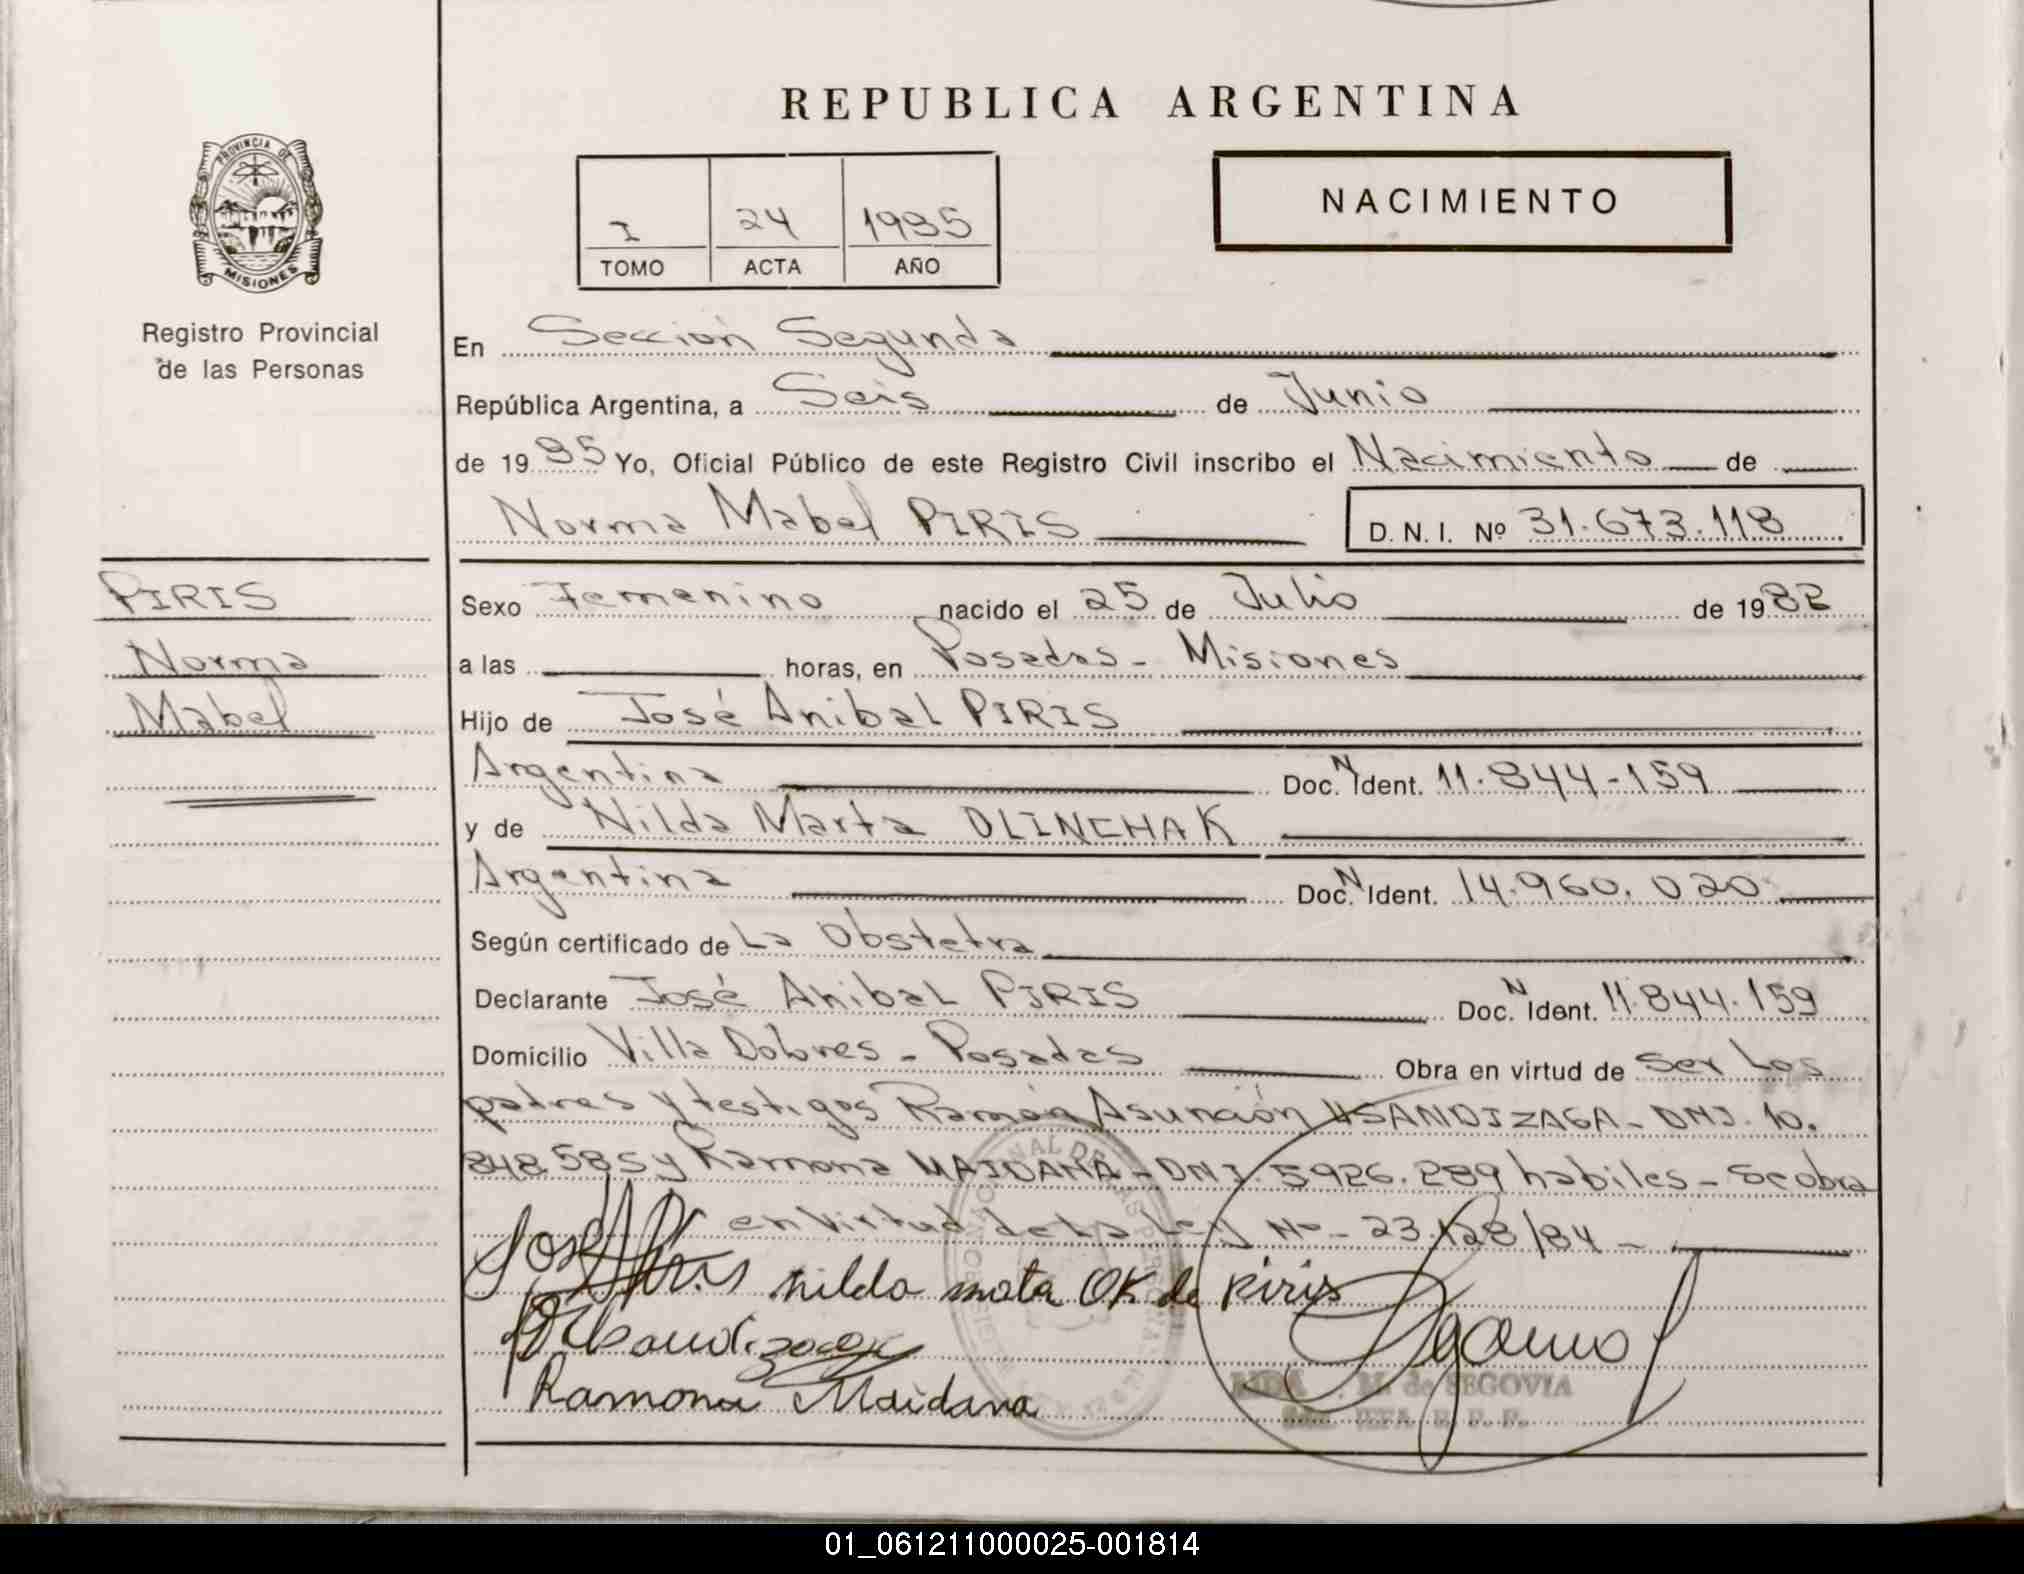 REPUBLICA ARGENTINA
PROVINCIA DE
MISIONES
Registro Provincial
de las Personas
I 24 1985
TOMO ACTA AÑO
NACIMIENTO
En Sección Segunda
República Argentina, a Seis de Junio
de 1985 Yo, Oficial Público de este Registro Civil inscribo el Nacimiento de
Norma Mabel PIRIS D.N.I. Nº 31.673.118
PIRIS
Norma
Mabel
Sexo Femenino nacido el 25 de Julio de 1982
a las horas, en Posadas - Misiones
Hijo de José Anibal PIRIS
Argentina Doc. N Ident. 11.844-159
y de Nilda Marta OLINCHAK
Argentina Doc. N Ident. 14.960.020
Según certificado de La Obstetra
Declarante José Anibal PIRIS Doc. N Ident. 11.844.159
Domicilio Villa Dolores - Posadas Obra en virtud de ser los
padres y testigos Ramón Asunción USANDIZAGA - DNI. 10.
848.585 y Ramona MAIDANA - DNI. 5926.289 habiles - se obra
en virtud de la Ley Nº - 23.128/84 -
José Piris nilda mata OK de Piris
Ramona Maidana
M. de SEGOVIA
01_061211000025-001814